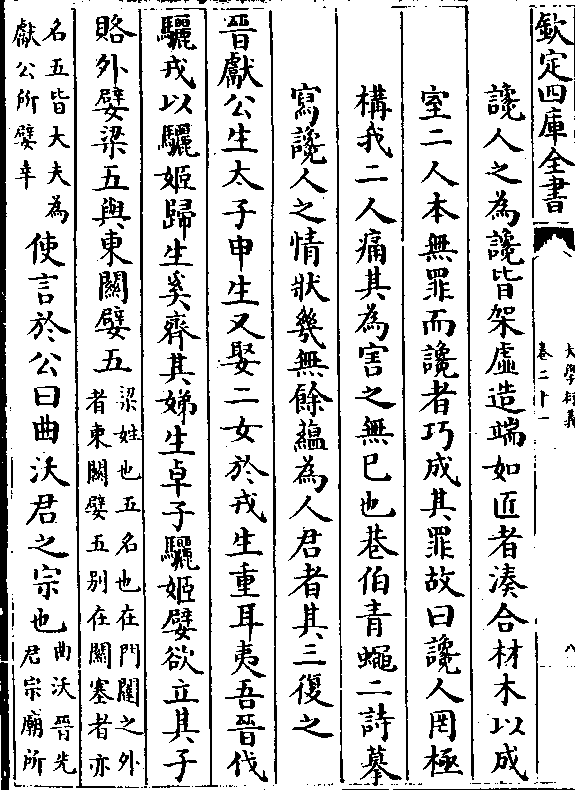 欽定四庫全書
大學衍義
卷二十一
八
讒人之為讒皆架虛造端如匠者湊合材木以成
室二人本無罪而讒者巧成其罪故曰讒人罔極
構我二人痛其為害之無已也巷伯青蠅二詩摹
寫讒人之情狀幾無餘藴為人君者其三復之
晉獻公生太子申生又娶二女於戎生重耳夷吾晉伐
驪戎以驪姬歸生奚齊其娣生卓子驪姬嬖欲立其子
賂外嬖梁五與東關嬖五
梁姓也五名也在門闥之外
者東關嬖五别在關塞者亦
名五皆大夫為
獻公所嬖幸
使言於公曰曲沃君之宗也
曲沃晉先
君宗廟所